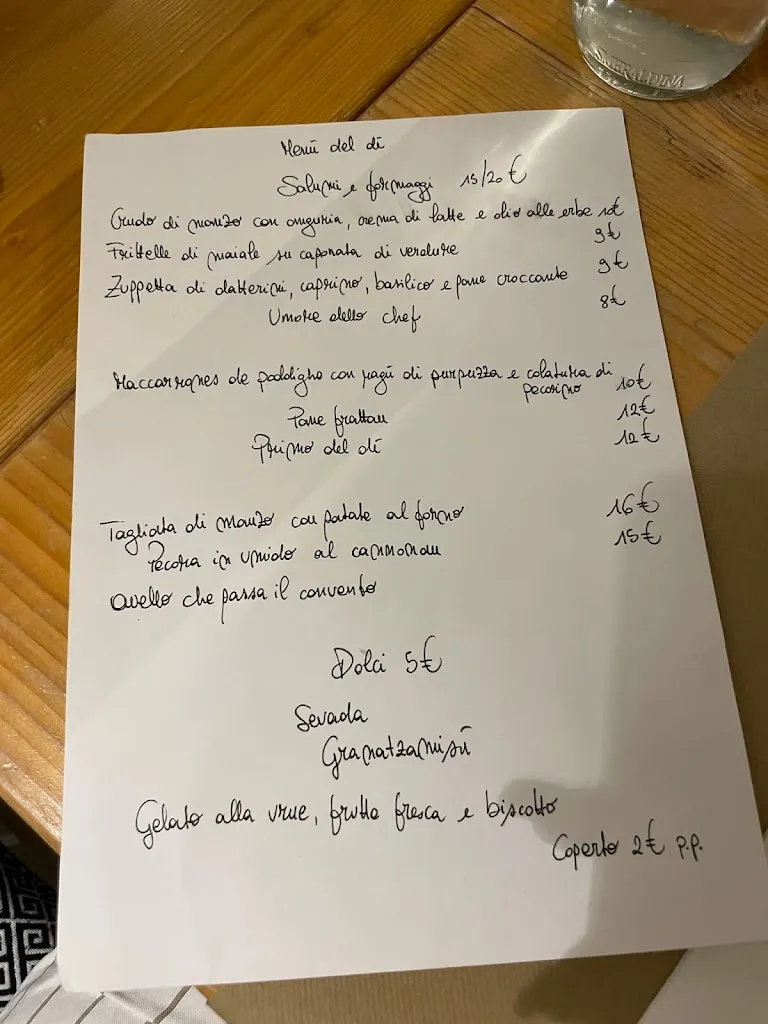 SMERALDINA
Menù del dì
Salumi e formaggi 15/20 €
Crudo di manzo con anguria, crema di latte e olio alle erbe 10€
Frittelle di maiale su caponata di verdure 9€
Zuppetta di datterini, caprino, basilico e pane croccante 9€
Umore dello chef 8€
Maccarrones de poddighe con ragù di purpuzza e colatura di
pecorino 10€
Pane frattau 12€
Primo del dì 12€
Tagliata di manzo con patate al forno 16€
Pecora in umido al cannonau 15€
Quello che passa il convento
Dolci 5€
Sevada
Granatzamisù
Gelato alla , frutta fresca e biscotto
Coperto 2€ p.p.